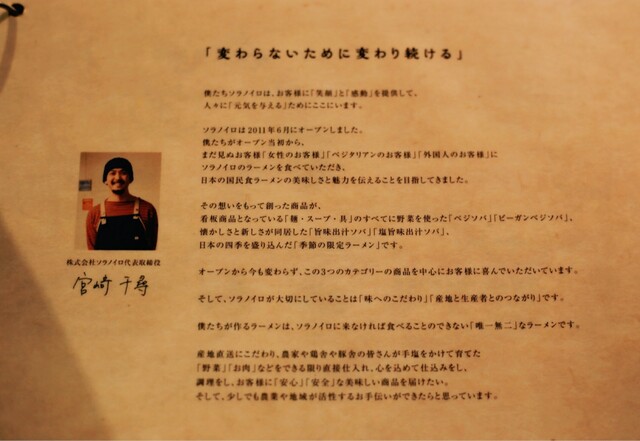 「変わらないために変わり続ける」
僕たちソラノイロは、お客様に「笑顔」と「感動」を提供して、
人々に「元気を与える」ためにここにいます。
ソラノイロは2011年6月にオープンしました。
僕たちがオープン当初から、
まだ見ぬお客様「女性のお客様」「ベジタリアンのお客様」「外国人のお客様」に
ソラノイロのラーメンを食べていただき、
日本の国民食ラーメンの美味しさと魅力を伝えることを目指してきました。
その想いをもって創った商品が、
看板商品となっている「麺・スープ・具」のすべてに野菜を使った「ベジソバ」、「ビーガンベジソバ」、
懐かしさと新しさが同居した「旨味出汁ソバ」「塩旨味出汁ソバ」、
日本の四季を盛り込んだ「季節の限定ラーメン」です。
オープンから今も変わらず、この3つのカテゴリーの商品を中心にお客様に喜んでいただいています。
そして、ソラノイロが大切にしていることは「味へのこだわり」「産地と生産者とのつながり」です。
僕たちが作るラーメンは、ソラノイロに来なければ食べることのできない「唯一無二」なラーメンです。
産地直送にこだわり、農家や鶏舎や豚舎の皆さんが手塩をかけて育てた
「野菜」「お肉」などをできる限り直接仕入れ、心を込めて仕込みをし、
調理をし、お客様に「安心」「安全」な美味しい商品を届けたい。
そして、少しでも農業や地域が活性するお手伝いができたらと思っています。
株式会社ソラノイロ代表取締役
宮崎千尋